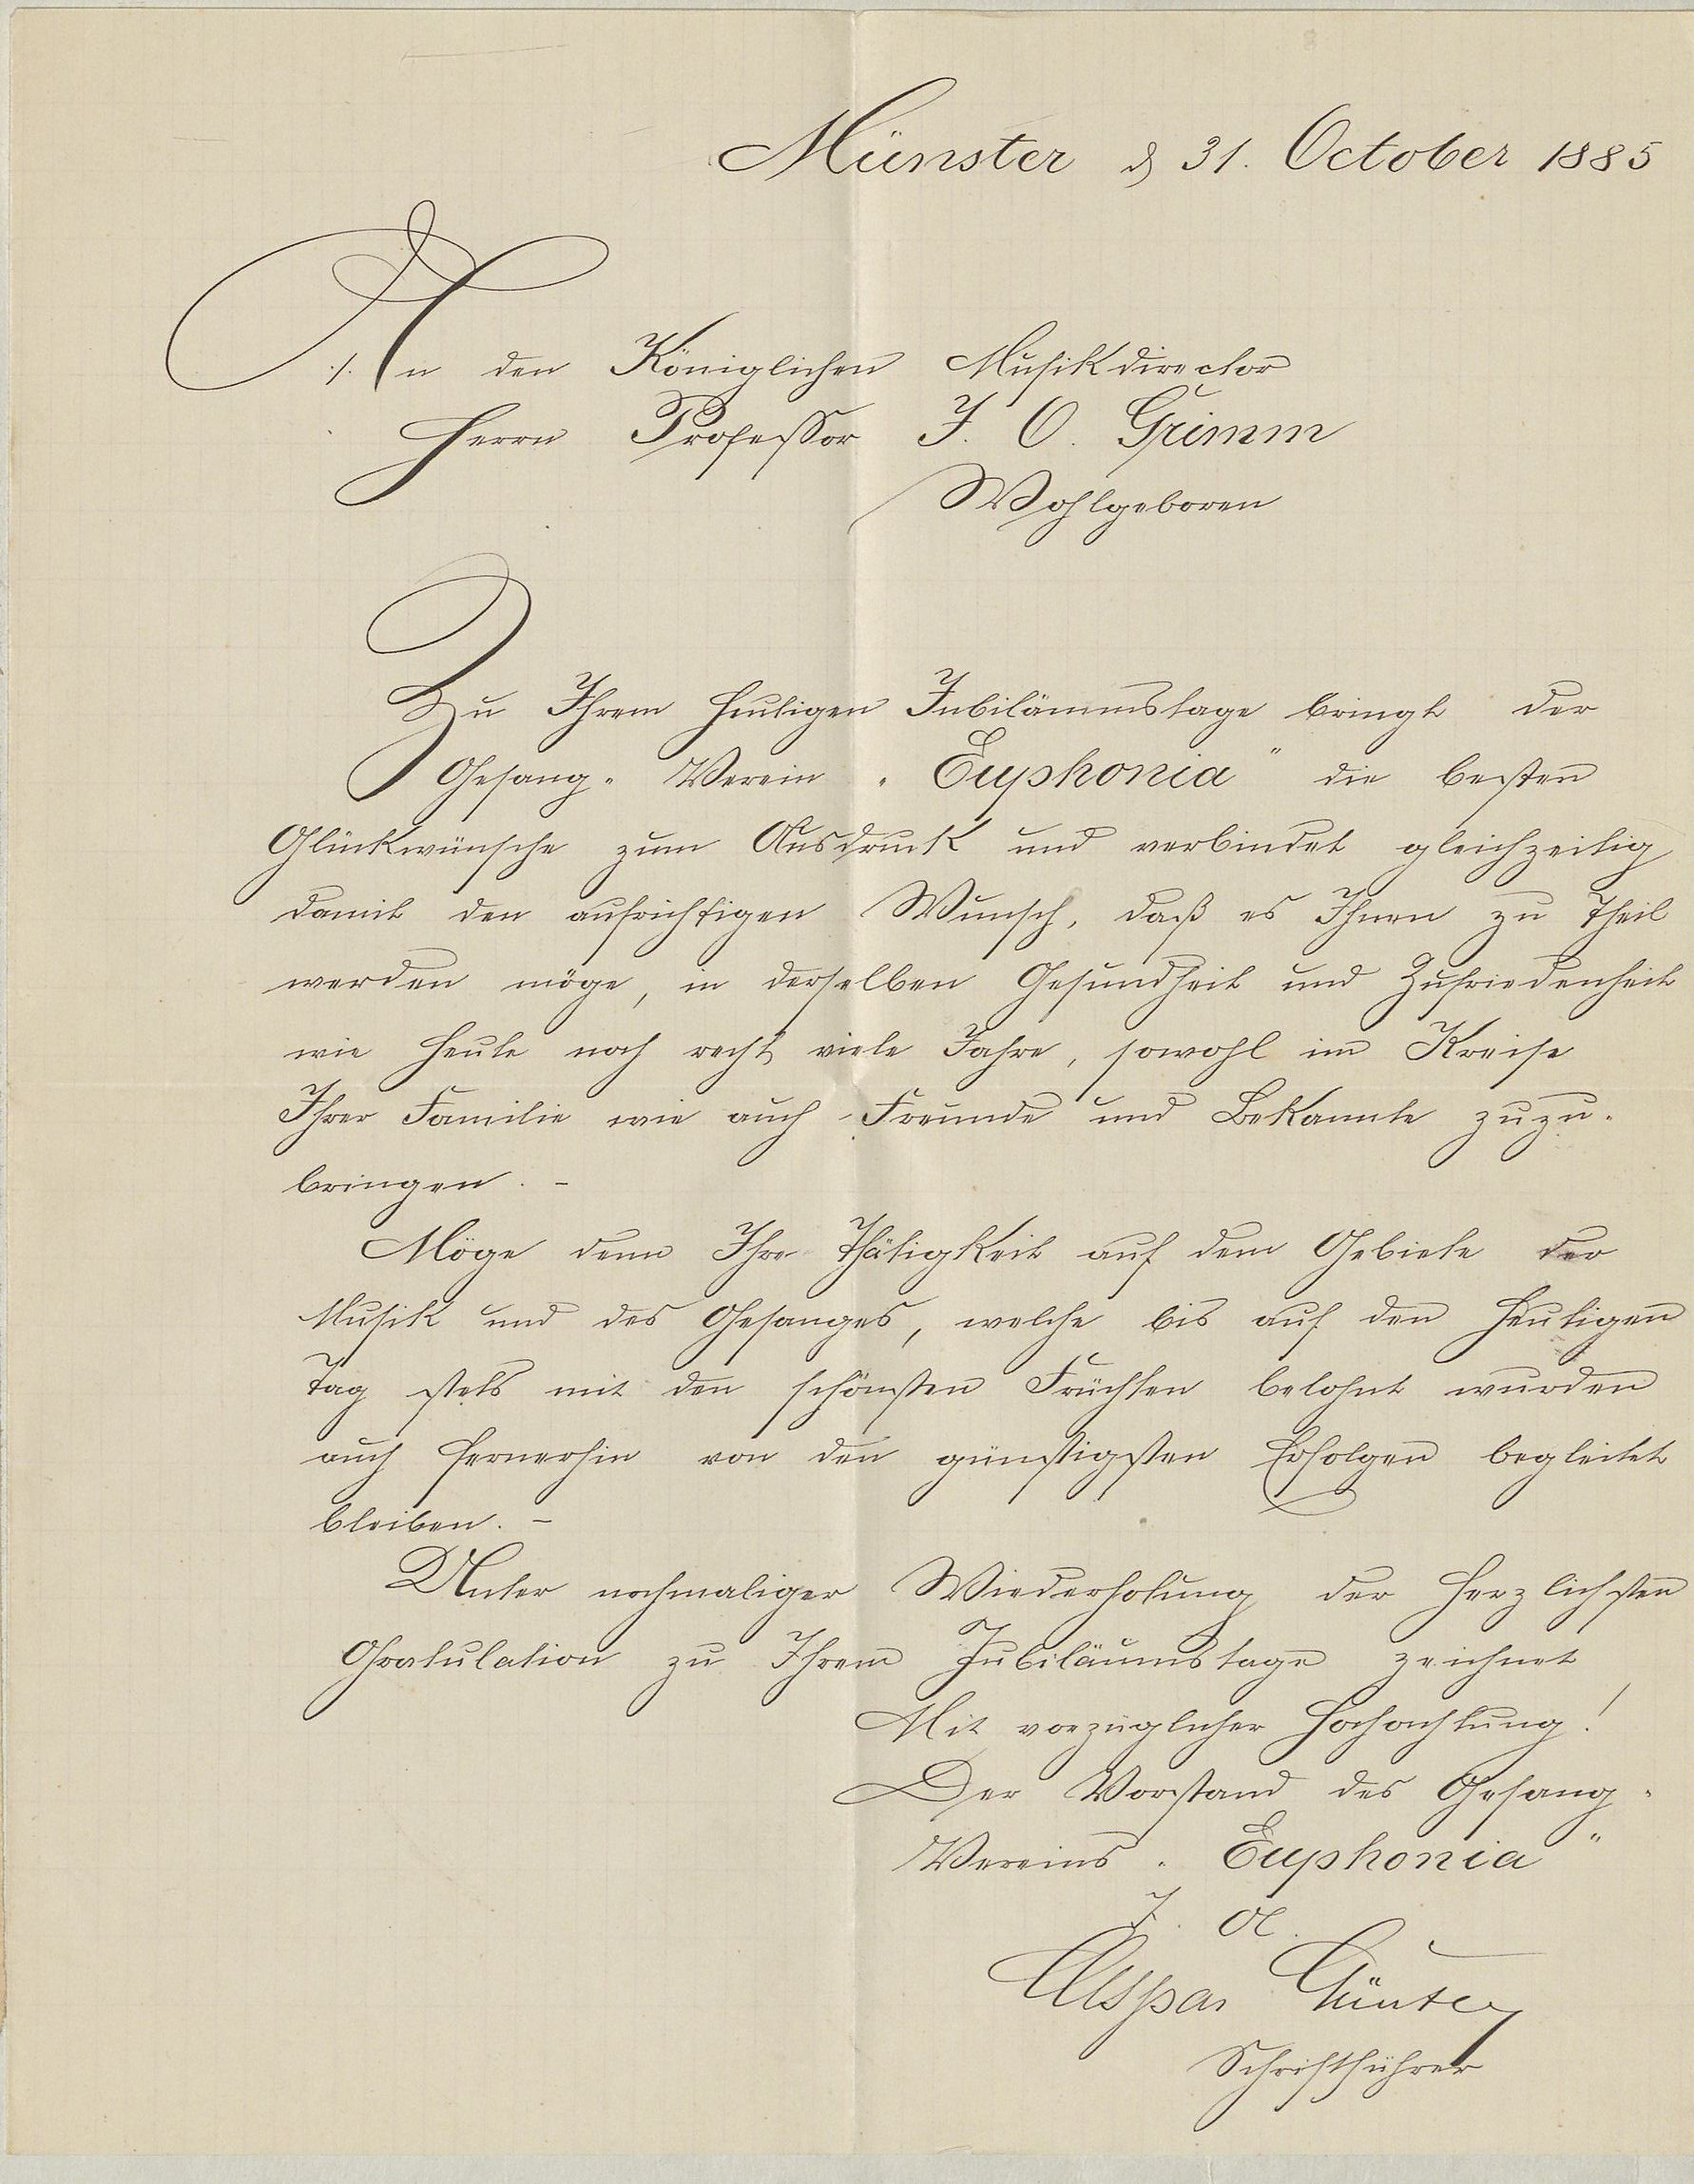 Münster d 31. October 1885
An den Königlichen Musikdirector
Herrn Professor J. O. Grimm
Wohlgeboren
Zu Ihrem heutigen Jubiläumstage bringt der
Gesang-Verein „Euphonia" die besten
Glückwünsche zum Ausdruck und verbindet gleichzeitig
damit den aufrichtigen Wunsch, daß es Ihnen zu Theil
werden möge, in derselben Gesundheit und Zufriedenheit
wie heute noch recht viele Jahre, sowohl im Kreise
Ihrer Familie wie auch Freunde und Bekannte zuzu-
bringen. –
Möge denn Ihre Thätigkeit auf dem Gebiete der
Musik und des Gesanges, welche bis auf den heutigen
Tag stets mit den schönsten Früchten belohnt wurden
auch fernerhin von den günstigsten Erfolgen begleitet
bleiben. –
Unter nochmaliger Wiederholung der herzlichsten
Gratulation zu Ihrem Jubiläumstage zeichnet
Mit vorzüglicher Hochachtung!
Der Vorstand des Gesang-
Vereins „Euphonia"
I. A.
Schriftführer